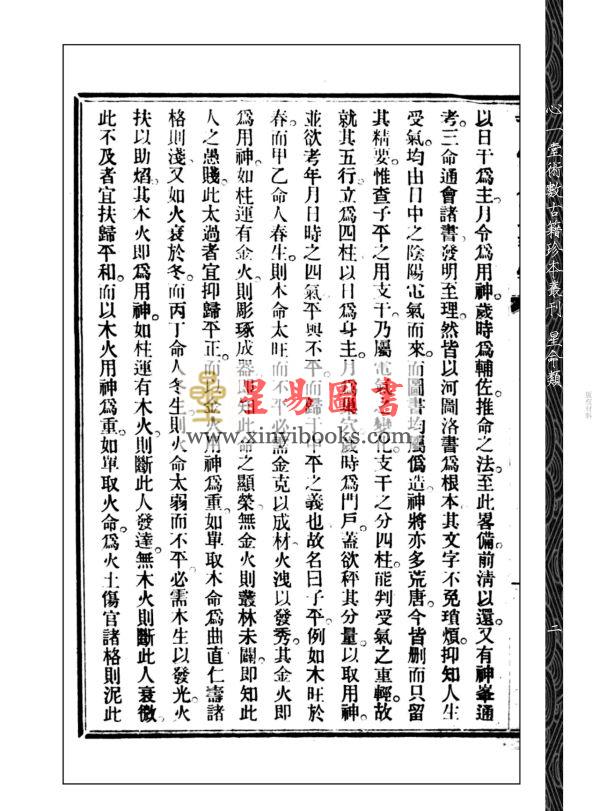 心一堂術數古籍珍本叢刊 星命類
版權材料
二
以日干爲主。月令爲用神。歲時爲輔佐。推命之法。至此畧備。前清以還。又有神峯通
考。三命通會諸書。發明至理。然皆以河圖洛書爲根本。其文字不免瑣煩。抑知人生
受氣。均由日中之陰陽電氣而來。而圖書均屬僞造。神將亦多荒唐。今皆删而只留
其精要。惟查子平之用支干。乃屬電氣之變化。支干之分四柱。能判受氣之重輕。故
就其五行。立爲四柱。以日爲身主。月爲巢穴。歲時爲門戶。蓋欲秤其分量。以取用神。
並欲考年月日時之四氣平與不平。而歸于中平之義也。故名曰子平。例如木旺於
春。而甲乙命人春生。則木命太旺而不平。必需金克以成材。火洩以發秀。其金火即
爲用神。如柱運有金火。則彫琢成器。即知此命之顯榮。無金火則叢林未闢。即知此
人之愚賤。此太過者宜抑歸平正。而以金火用神爲重。如單取木命爲曲直仁壽諸
格則淺。又如火衰於冬。而丙丁命人冬生。則火命太弱而不平。必需木生以發光。火
扶以助熖。其木火即爲用神。如柱運有木火。則斷此人發達。無木火則斷此人衰微。
此不及者宜扶歸平和。而以木火用神爲重。如單取火命爲火土傷官諸格則泥。此
星易圖書
www.xinyibooks.com